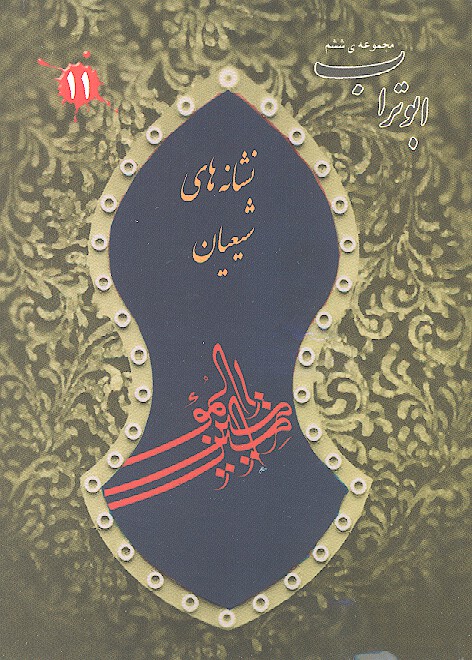 مجموعه ی ششم
ابوتراب
۱۱
نشانه های
شیعیان